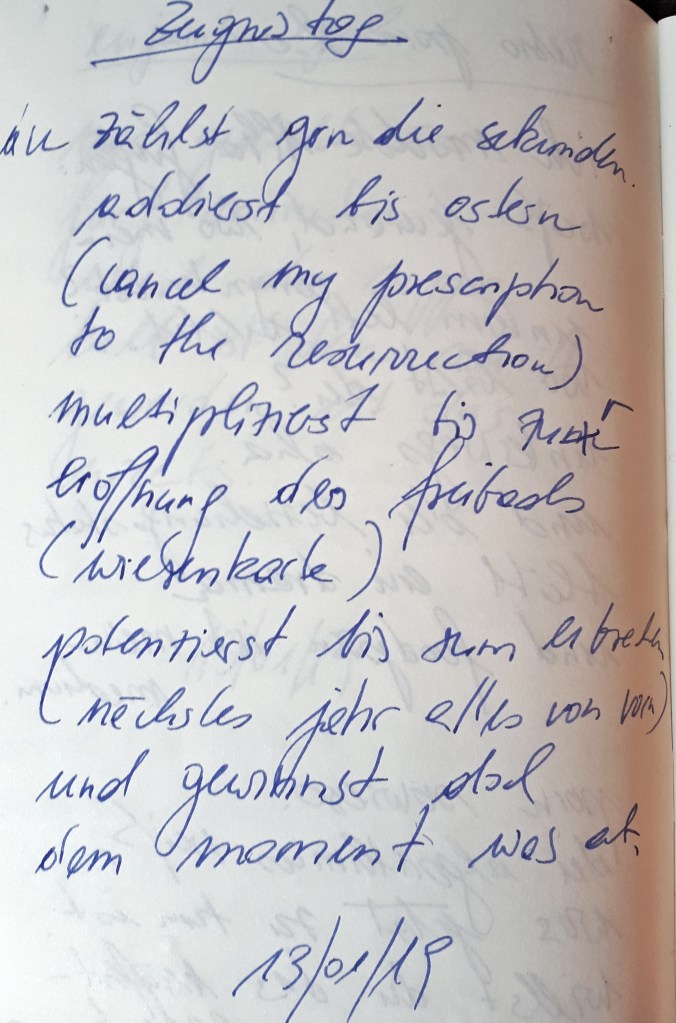 Zeugnistag
du zählst gern die sekunden.
addierst bis ostern
(cancel my prescription
to the resurrection)
multiplizierst bis zur
eröffnung des freibads
(wiesenkarte)
potenzierst bis zum erbrechen
(nächstes jahr alles von vorn)
und gewinnst doch
dem moment was ab.
13/01/19